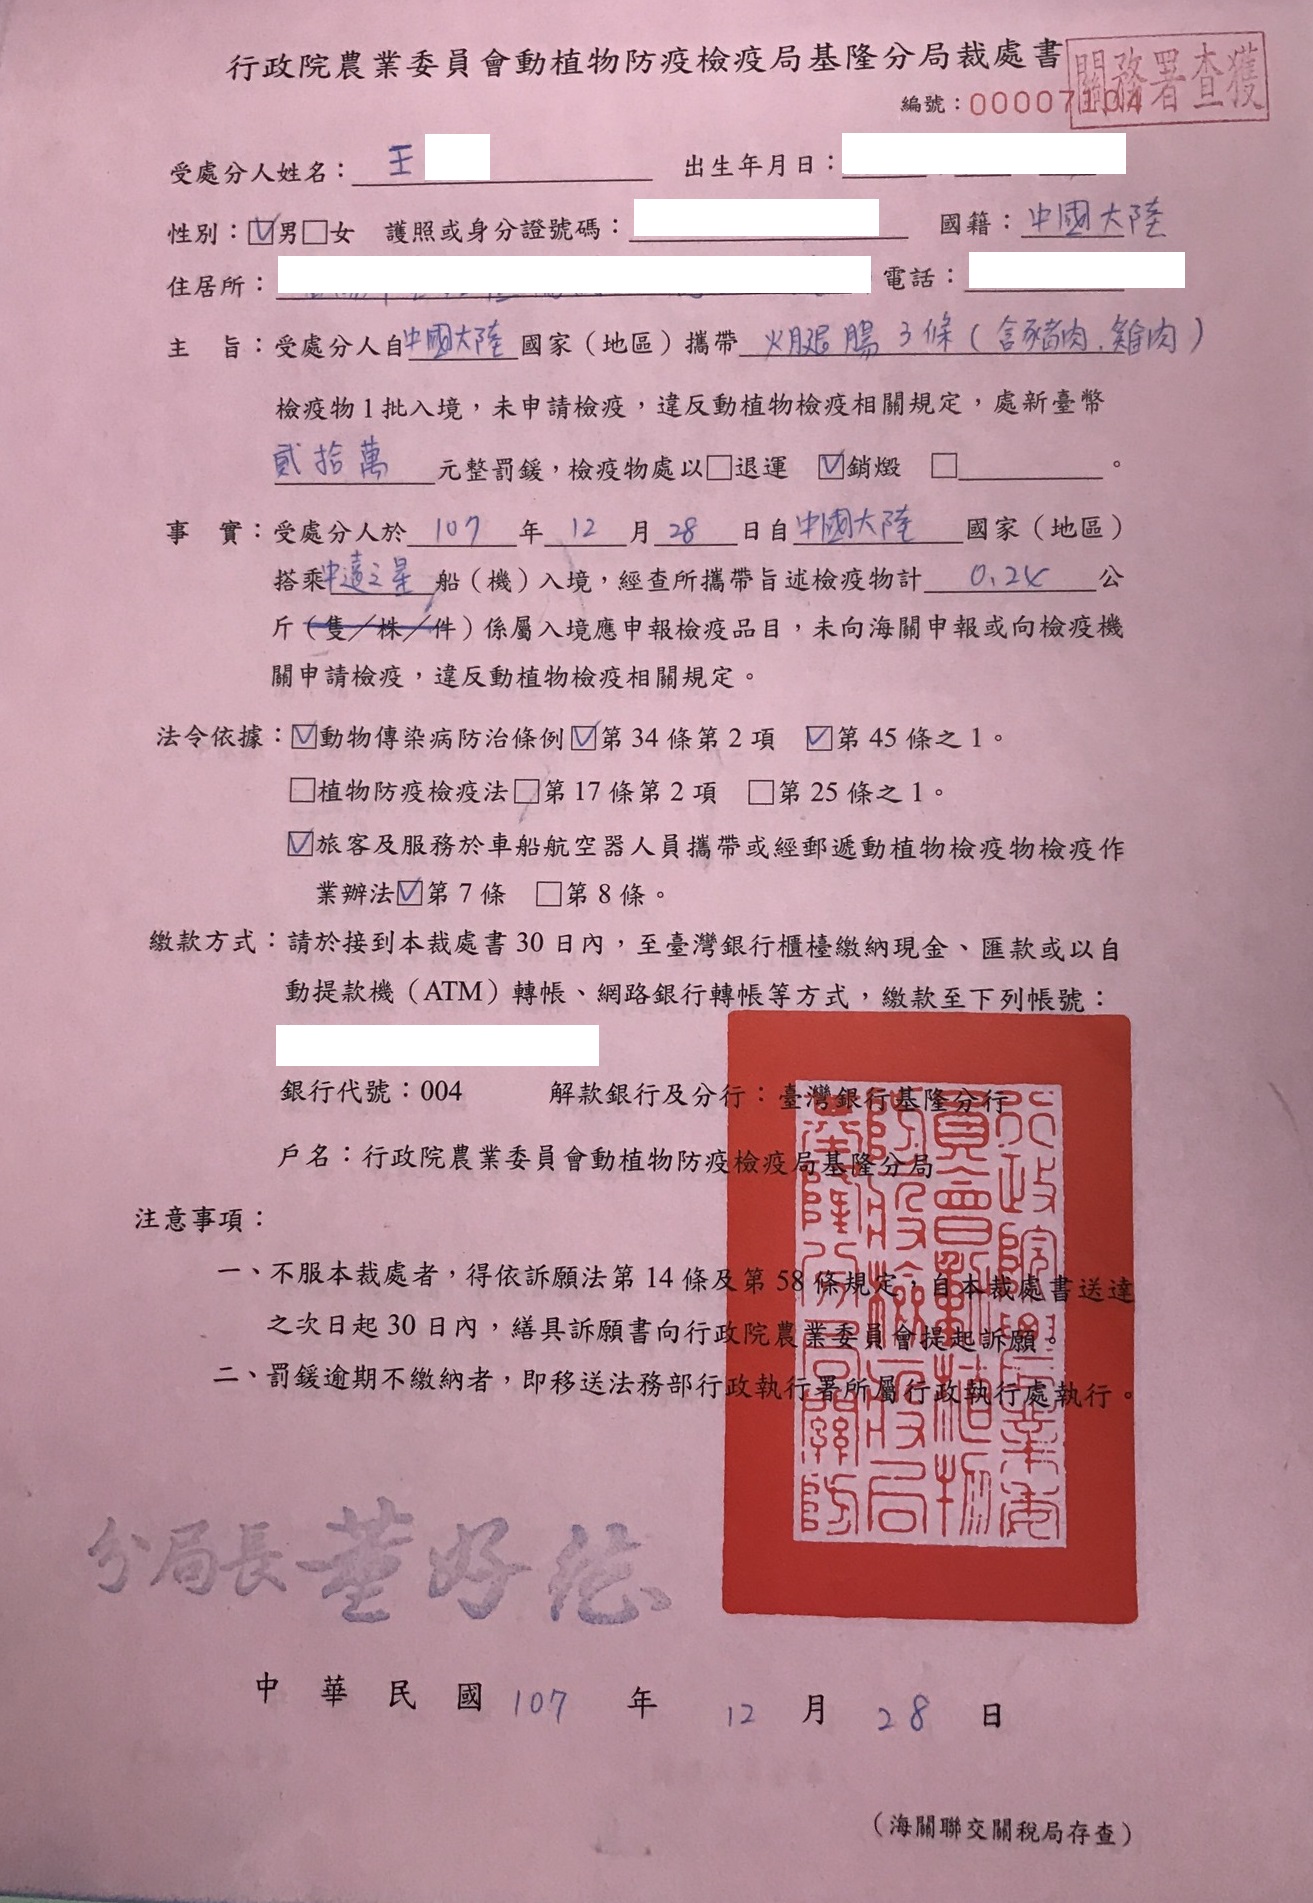 行政院農業委員會動植物防疫檢疫局基隆分局裁處書
關務署查獲
編號：00007104
受處分人姓名：王 出生年月日：
性別：☑男□女 護照或身分證號碼： 國籍：中國大陸
住居所： 電話：
主 旨：受處分人自中國大陸國家（地區）攜帶火腿腸3條（含豬肉.雞肉）
檢疫物1批入境，未申請檢疫，違反動植物檢疫相關規定，處新臺幣
貳拾萬元整罰鍰，檢疫物處以□退運 ☑銷燬 □ 。
事 實：受處分人於107年12月28日自中國大陸國家（地區）
搭乘中遠之星船（機）入境，經查所攜帶旨述檢疫物計 公
斤（隻／株／件）係屬入境應申報檢疫品目，未向海關申報或向檢疫機
關申請檢疫，違反動植物檢疫相關規定。
法令依據：☑動物傳染病防治條例☑第34條第2項 ☑第45條之1。
□植物防疫檢疫法□第17條第2項 □第25條之1。
☑旅客及服務於車船航空器人員攜帶或經郵遞動植物檢疫物檢疫作
業辦法☑第7條 □第8條。
繳款方式：請於接到本裁處書30日內，至臺灣銀行櫃檯繳納現金、匯款或以自
動提款機（ATM）轉帳、網路銀行轉帳等方式，繳款至下列帳號：
銀行代號：004 解款銀行及分行：臺灣銀行基隆分行
戶名：行政院農業委員會動植物防疫檢疫局基隆分局
行政院農業委員會動植物防疫檢疫局基隆分局關防
注意事項：
一、不服本裁處者，得依訴願法第14條及第58條規定，自本裁處書送達
之次日起30日內，繕具訴願書向行政院農業委員會提起訴願。
二、罰鍰逾期不繳納者，即移送法務部行政執行署所屬行政執行處執行。
分局長董好德
中華民國107年12月28日
（海關聯交關稅局存查）